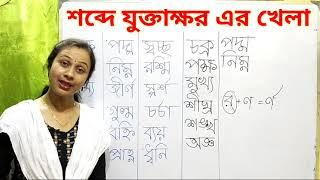 শব্দে যুক্তাক্ষর এর খেলা
পদ্ম স্বচ্ছ চক্র পদ্ম
নিম্ন রশ্মি পক্ষ নিম্ন
জীর্ণ স্পর্শ মুখ্য
গুল্ম চর্চা শীঘ্র + ণ = র্ণ
বহ্নি ব্যয় শঙ্খ
প্রাহ্ণ ধ্বনি অজ্ঞ